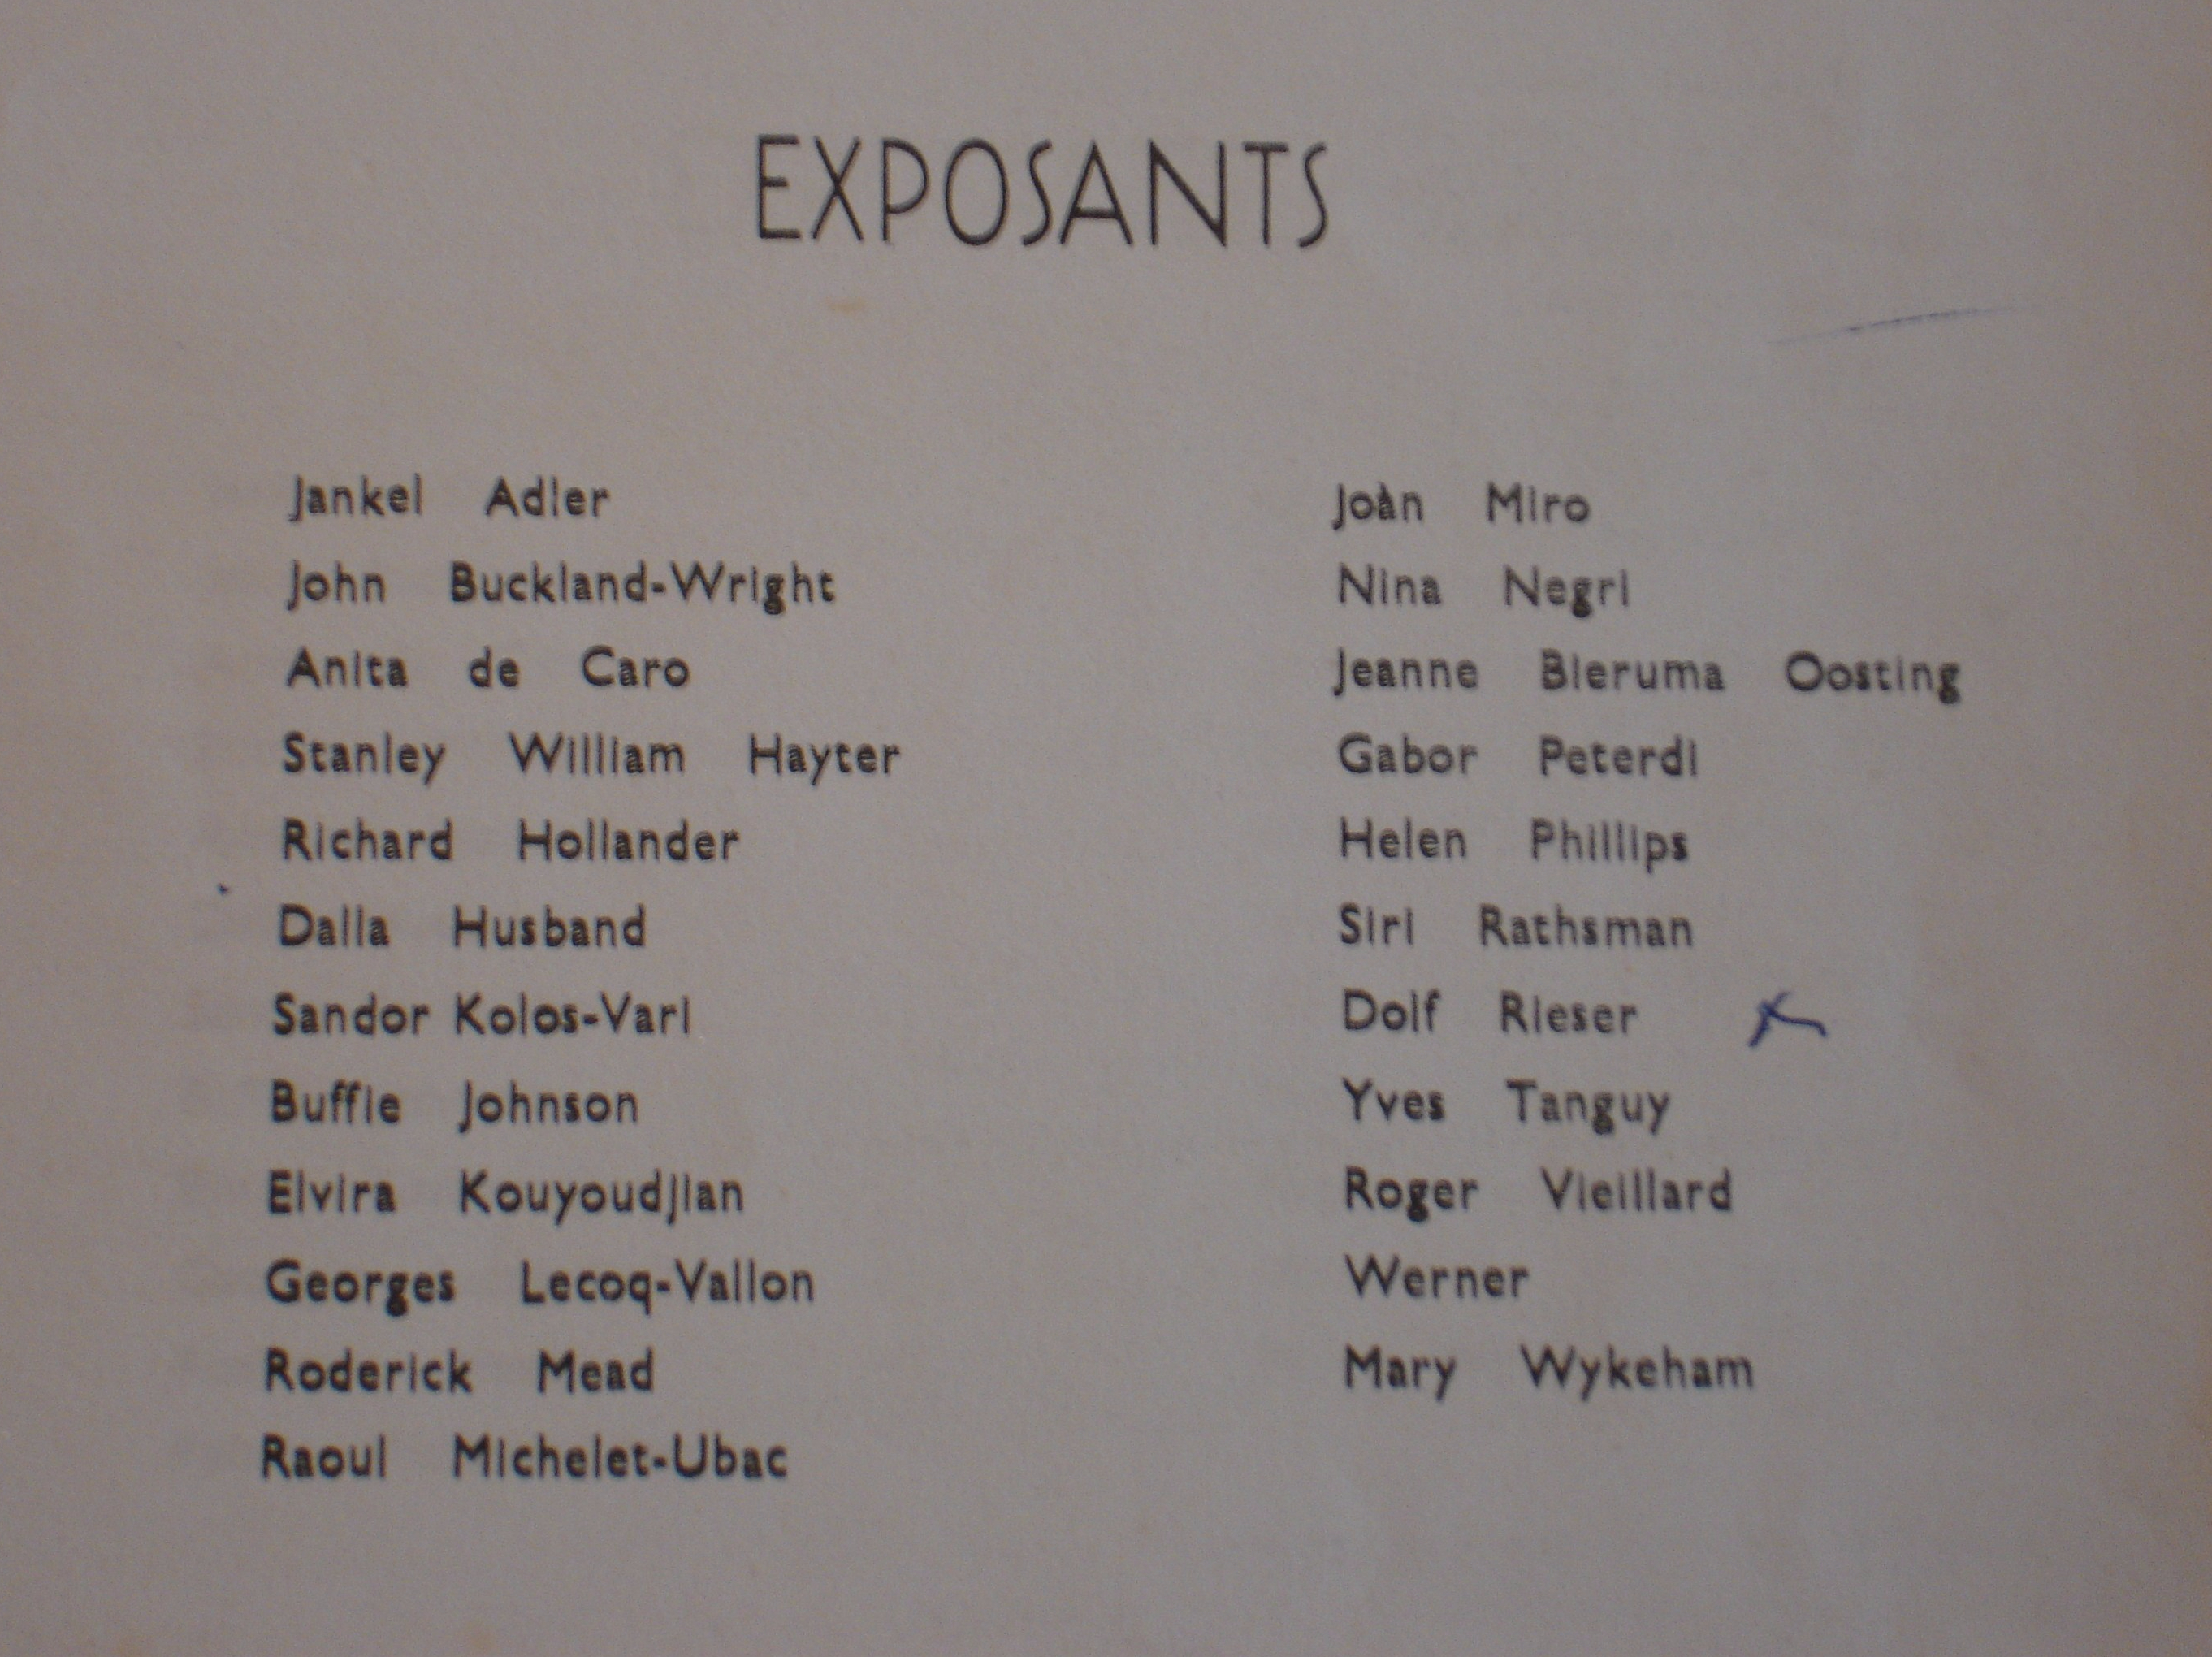 EXPOSANTS
Jankel Adler
John Buckland-Wright
Anita de Caro
Stanley William Hayter
Richard Hollander
Dalla Husband
Sandor Kolos-Vari
Buffie Johnson
Elvira Kouyoudjian
Georges Lecoq-Vallon
Roderick Mead
Raoul Michelet-Ubac
Joàn Miro
Nina Negri
Jeanne Bieruma Oosting
Gabor Peterdi
Helen Phillips
Siri Rathsman
Dolf Rieser
Yves Tanguy
Roger Vieillard
Werner
Mary Wykeham